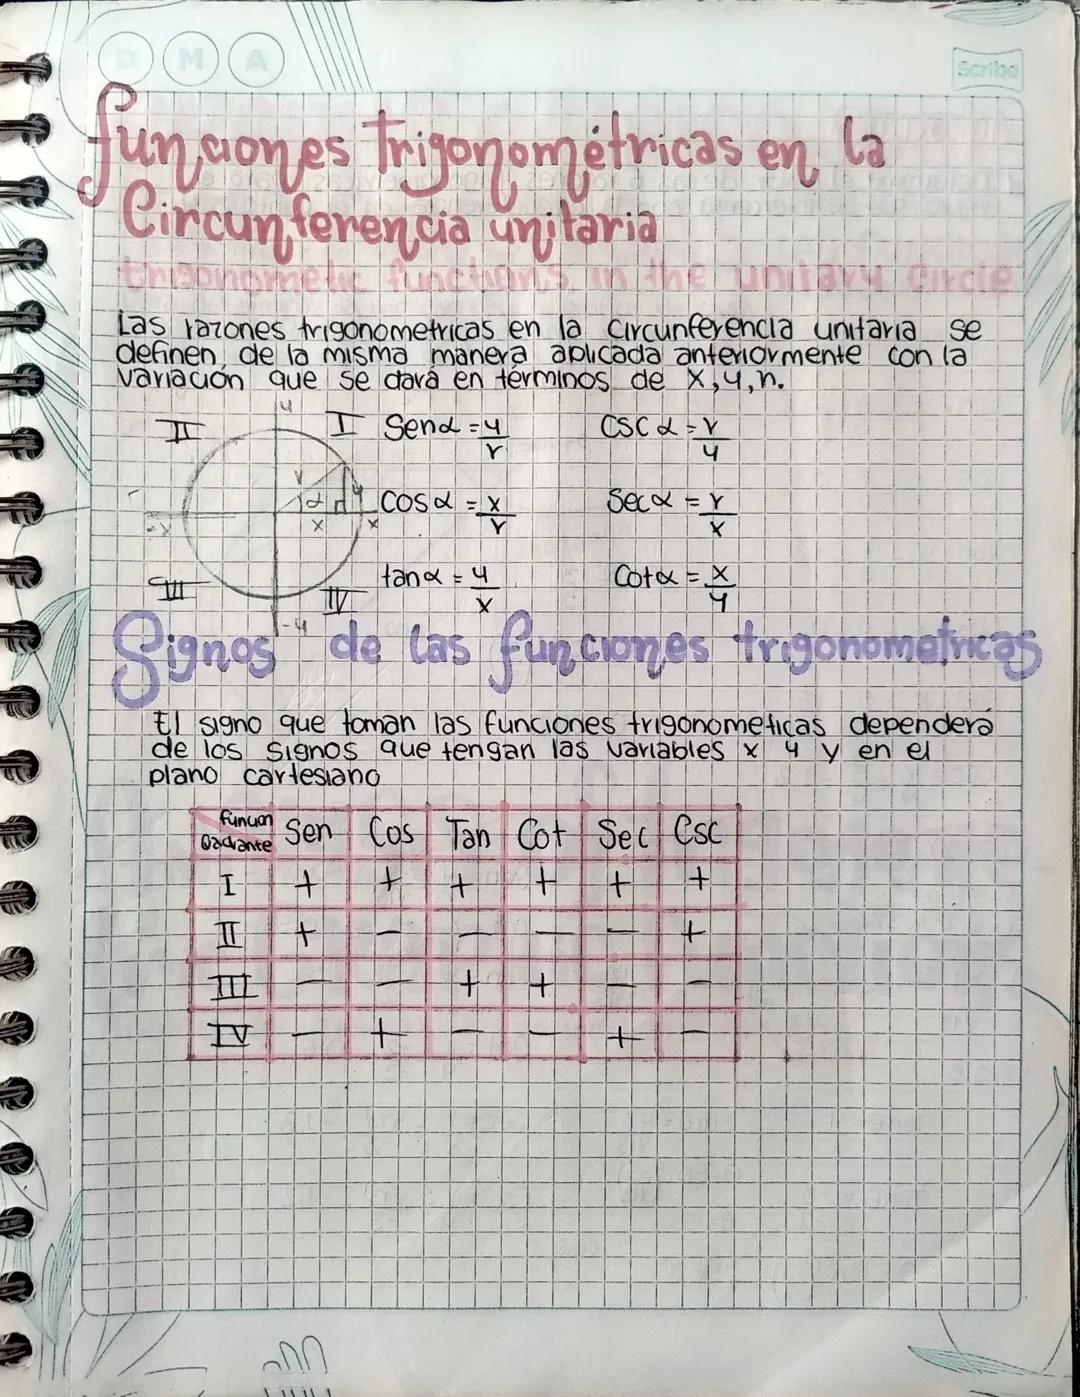 D M A
Scribe
funciones trigonométricas en la
Circunferencia unitaria
trigonometic functions in the unitary circle
Las razones trigonometricas en la circunferencia unitaria se
definen de la misma manera aplicada anteriormente con la
variación que se dará en términos de x,y,n.
II I Senα = y/r Csc α = r/y
y
r α y
-x x x
Cosα = x/r Secα = r/x
III IV tanα = y/x Cotα = x/y
-y
Signos de las funciones trigonometricas
El signo que toman las funciones trigonometicas dependerá
de los signos que tengan las variables x y y en el
plano cartesiano
función Sen Cos Tan Cot Sec Csc
Qadrante
I + + + + + +
II + - - - - +
III - - + + - -
IV - + - - + -